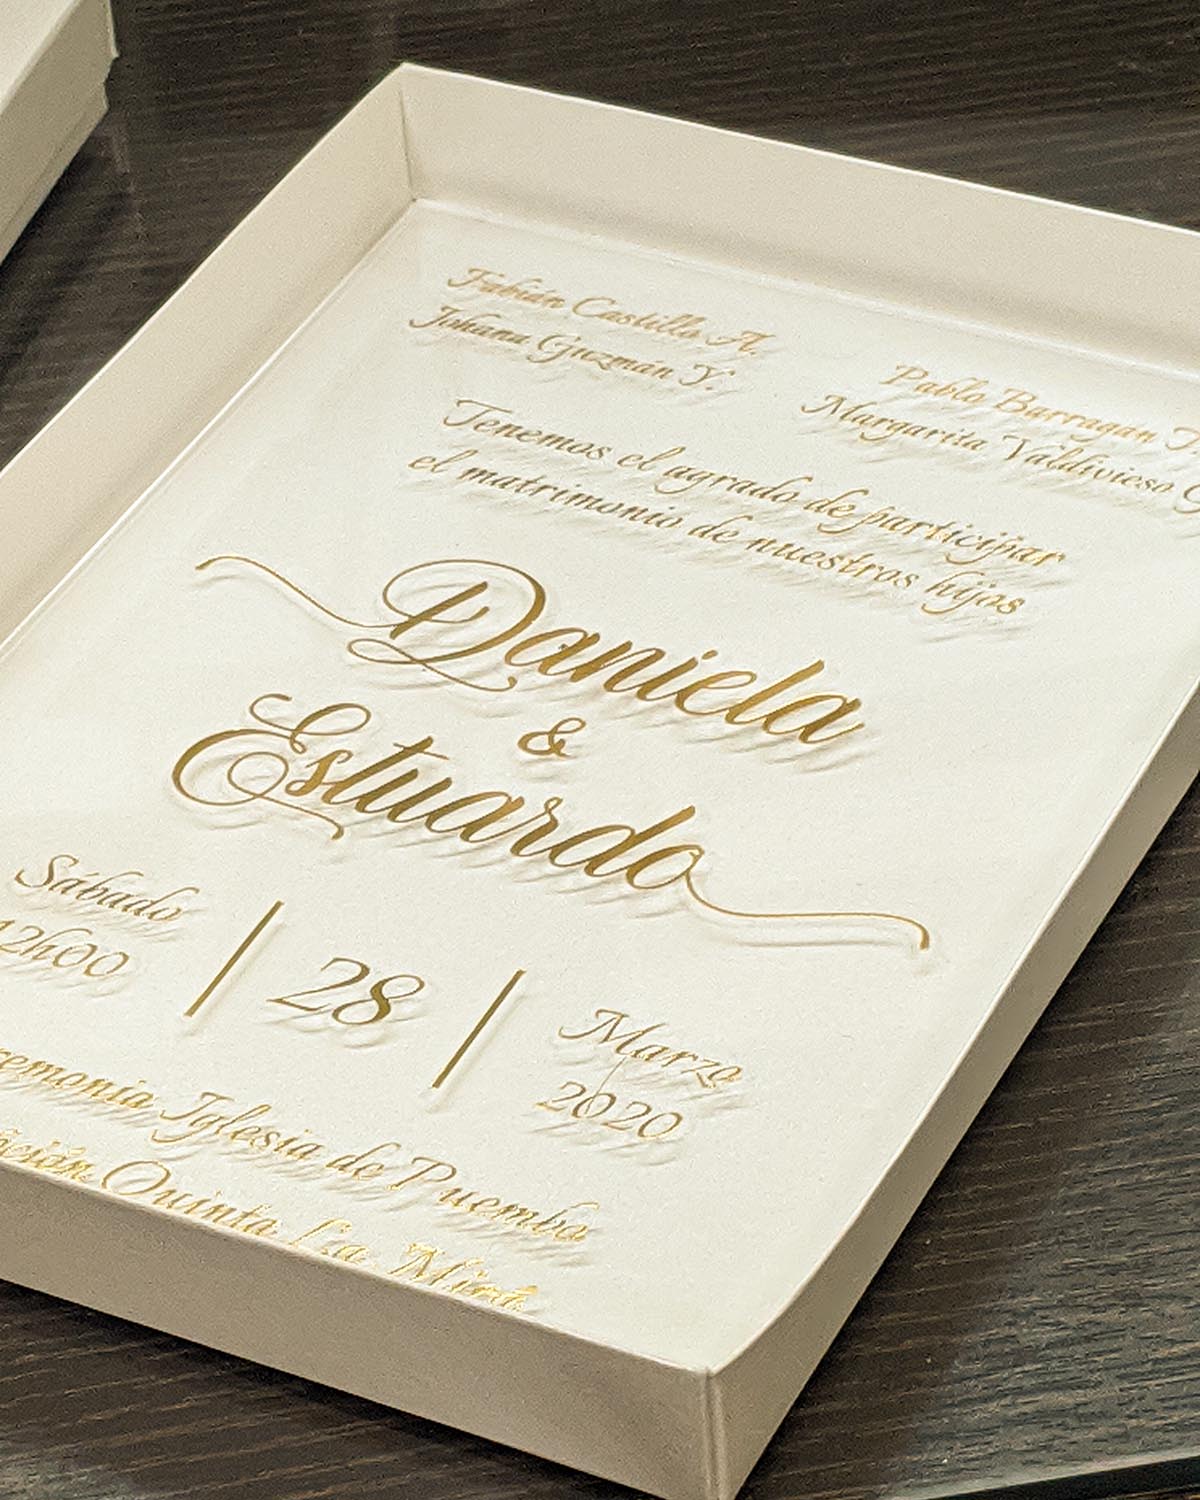 Fabián Castillo A.
Johana Guzmán Y.
Pablo Barragán
Margarita Valdivieso
Tenemos el agrado de participar
el matrimonio de nuestros hijos
Daniela
&
Estuardo
Sábado
12h00
28
Marzo
2020
Iglesia de Puembo
Quinta La